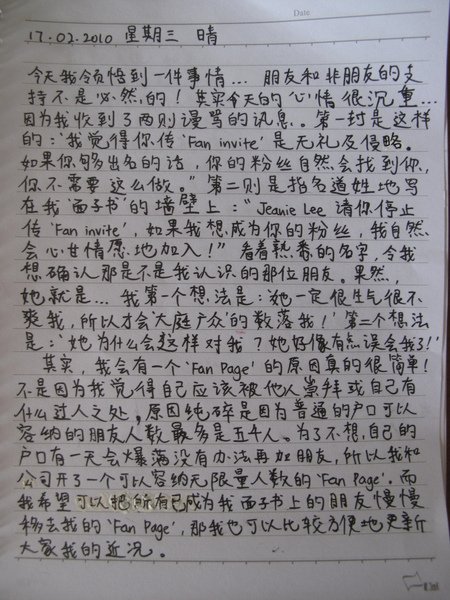 Date
17.02.2010 星期三 晴
今天我领悟到一件事情... 朋友和非朋友的支
持不是必然的！其实今天的心情很沉重...
因为我收到了两则谩骂的讯息。第一封是这样
的：“我觉得你传‘Fan invite’是无礼及侵略。
如果你够出名的话，你的粉丝自然会找到你，
你不需要这么做。”第二则是指名道姓地写
在我‘面子书’的墙壁上：“Jeanie Lee 请你停止
传‘Fan invite’，如果我想成为你的粉丝，我自然
会心甘情愿地加入！”看着熟悉的名字，令我
想确认那是不是我认识的那位朋友。果然，
她就是... 我第一个想法是：‘她一定很生气很不
爽我，所以才会‘大庭广众’的数落我！’第二个想法
是：‘她为什么会这样对我？她好像有点误会我了！’
其实，我会有一个‘Fan Page’的原因真的很简单！
不是因为我觉得自己应该被他人崇拜或自己有
什么过人之处。原因纯碎是因为普通的户口可以
容纳的朋友人数最多是五千人。为了不想自己的
户口有一天会爆满没有办法再加朋友，所以我和
公司开了一个可以容纳无限量人数的‘Fan Page’。而
我希望可以把所有已成为我面子书上的朋友慢慢
移去我的‘Fan Page’，那我也可以比较方便地更新
大家我的近况。